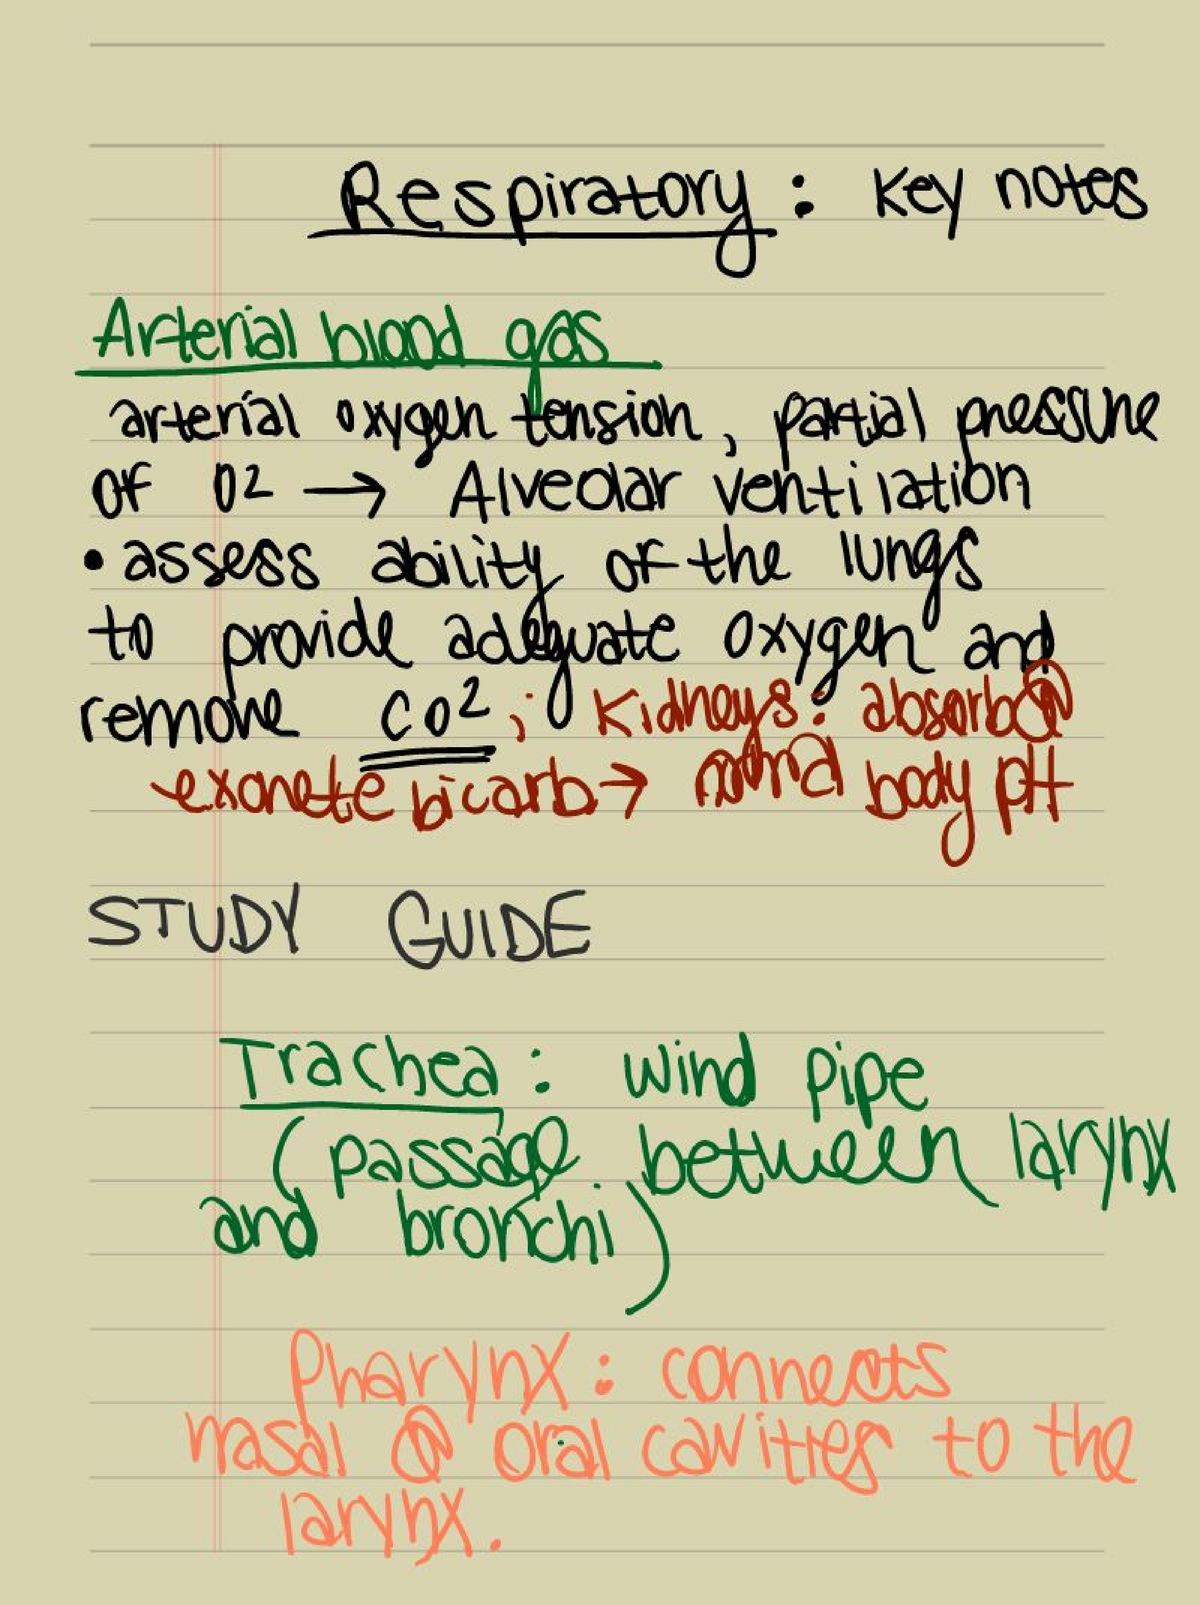 Respiratory: Key notes
Arterial blood gas
arterial oxygen tension, partial pressure
of O2 → Alveolar ventilation
• assess ability of the lungs
to provide adequate oxygen and
remove CO2; Kidneys: absorb @
bicarb → body pH
STUDY GUIDE
Trachea: wind pipe
(passage between larynx
and bronchi)
Pharynx: connects
nasal @ oral cavities to the
larynx.